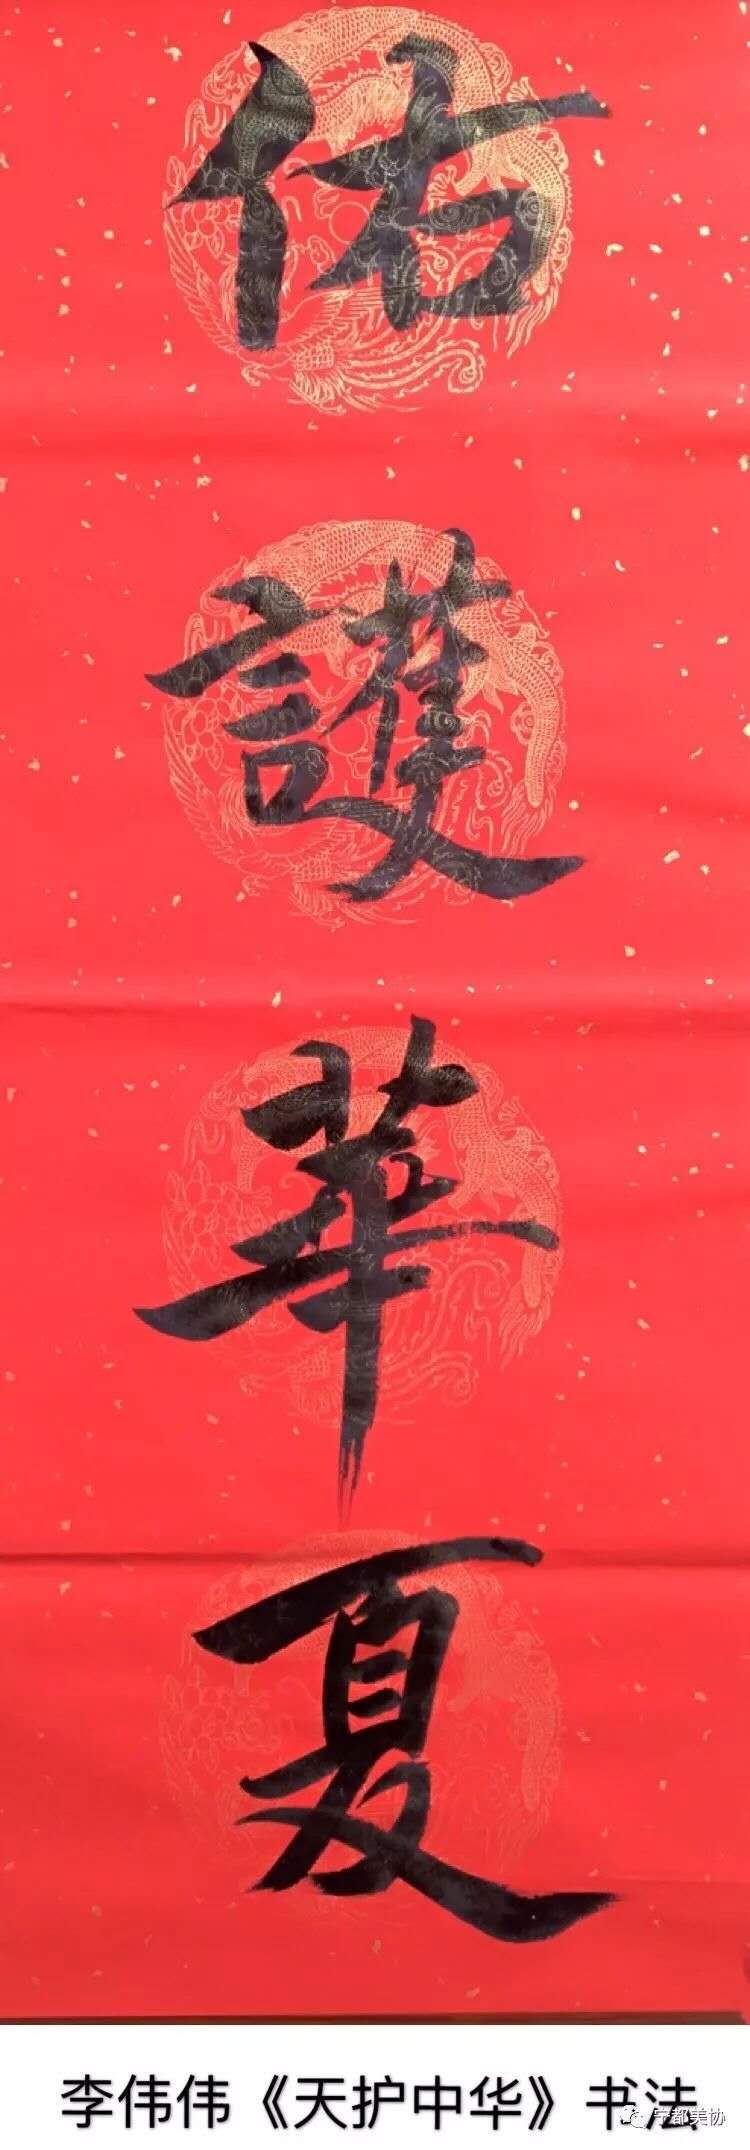 佑
護
華
夏
李伟伟《天护中华》书法
宁都美协